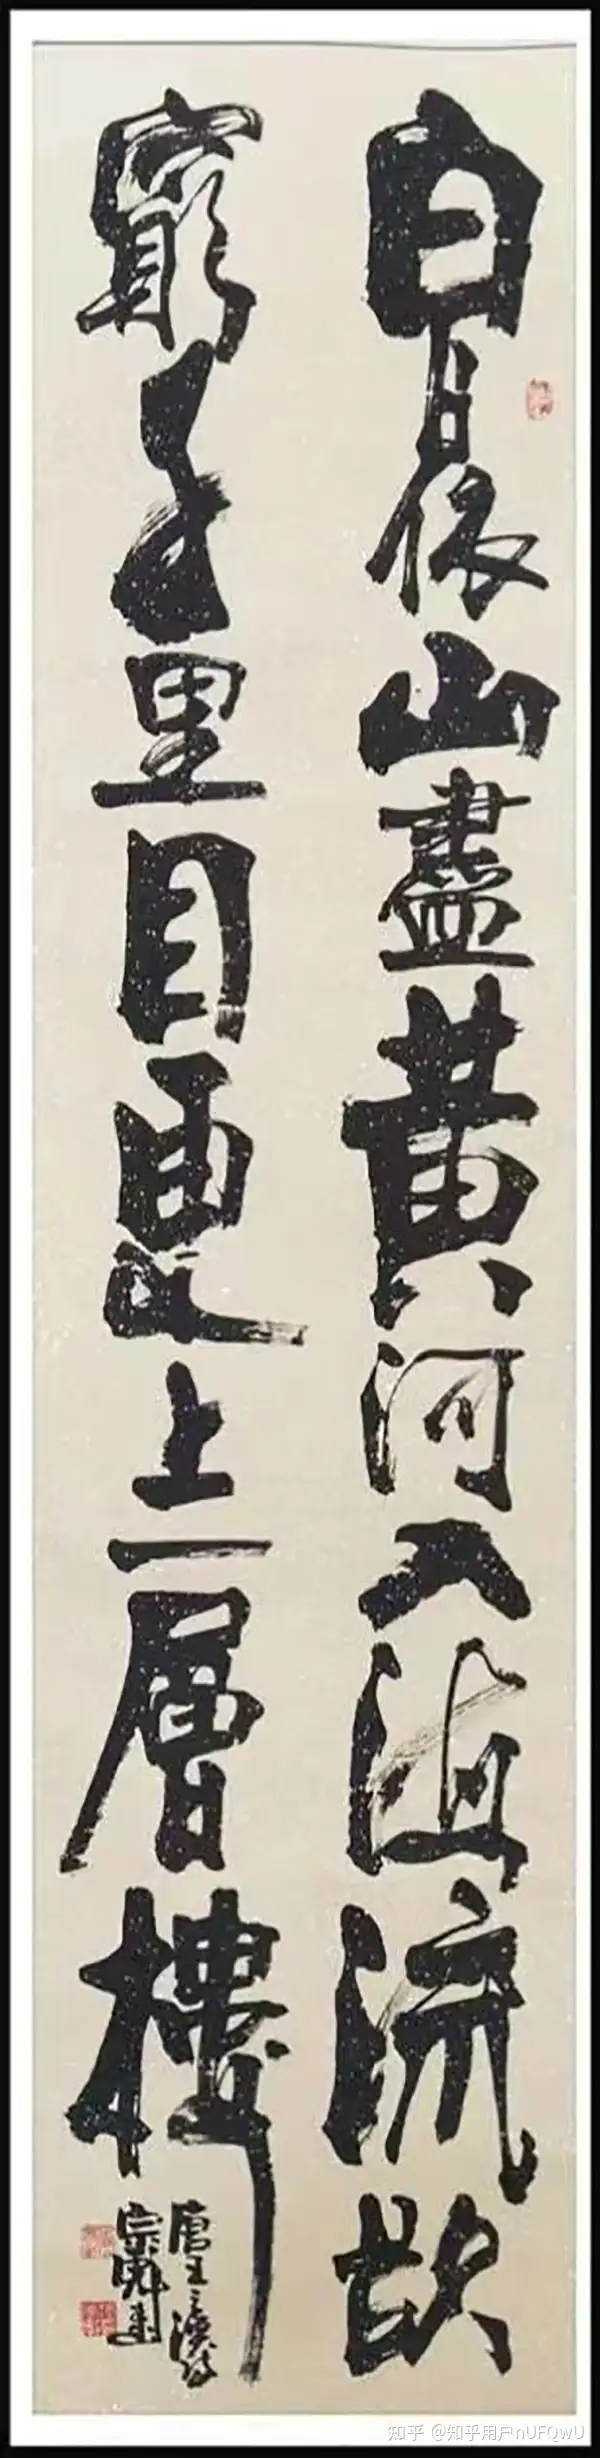 白日依山盡黄河入海流欲
窮千里目更上一層樓
唐王之渙詩
宗
知乎 @知乎用户nUFQwU